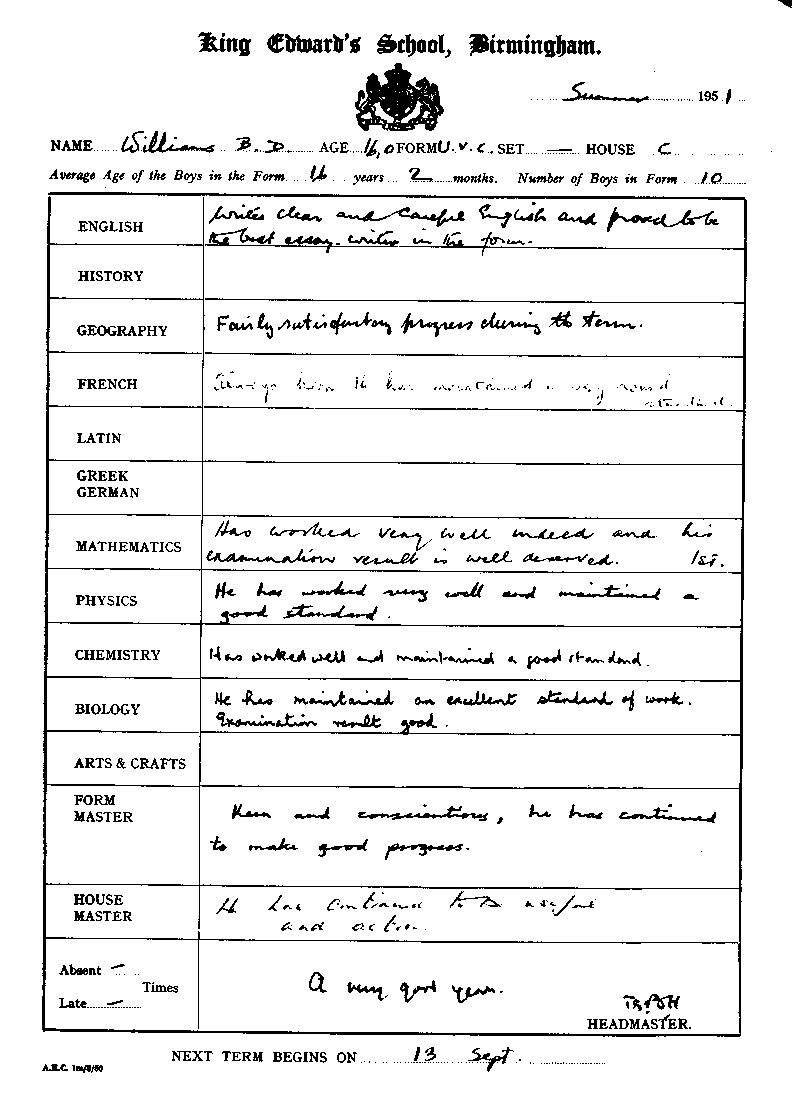 King Edward's School, Birmingham.
Summer 1951
NAME Williams B. D. AGE 16,0 FORM U.V.C. SET — HOUSE C
Average Age of the Boys in the Form 16 years 2 months. Number of Boys in Form 10
ENGLISH Writes clear and careful English and proved to be
the best essay-writer in the form.
HISTORY
GEOGRAPHY Fairly satisfactory progress during the term.
FRENCH Always keen he has maintained a very sound
standard.
LATIN
GREEK
GERMAN
MATHEMATICS Has worked very well indeed and his
examination result is well deserved. 1st.
PHYSICS He has worked very well and maintained a
good standard.
CHEMISTRY Has worked well and maintained a good standard.
BIOLOGY He has maintained an excellent standard of work.
Examination result good.
ARTS & CRAFTS
FORM
MASTER Keen and conscientious, he has continued
to make good progress.
HOUSE
MASTER He has continued to be useful
and active.
Absent —
Times
Late —
A very good year.
HEADMASTER.
NEXT TERM BEGINS ON 13 Sept.